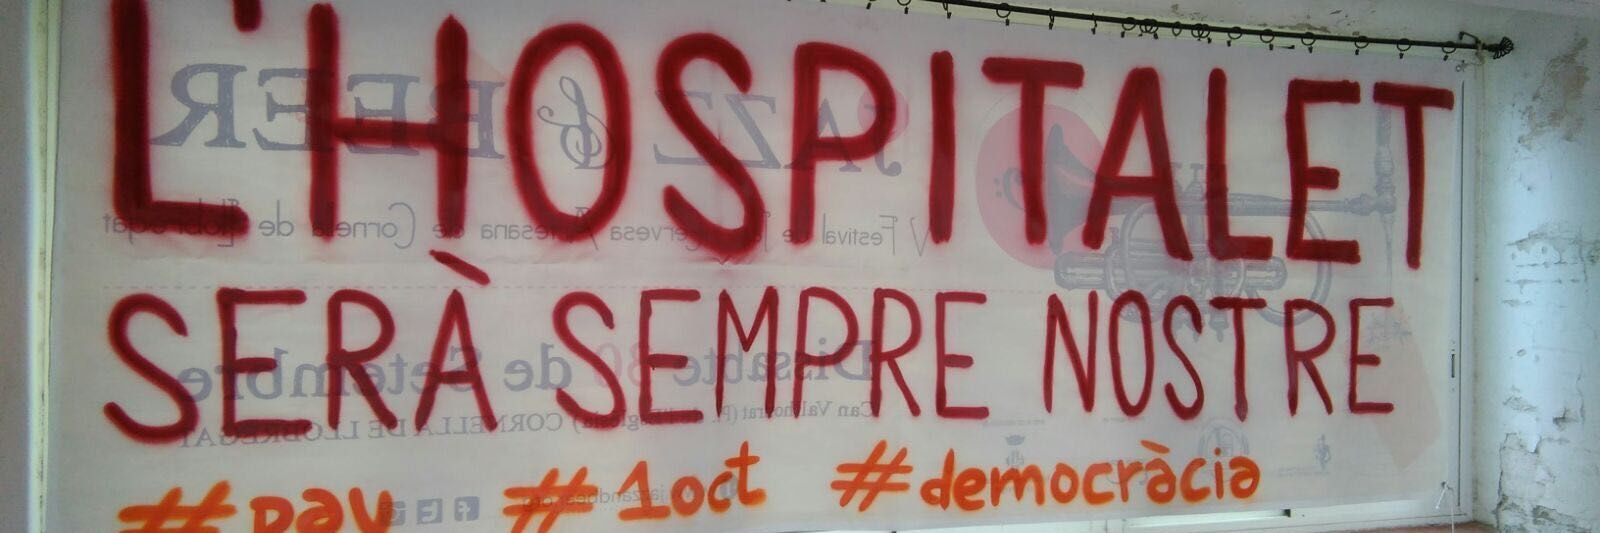 L'HOSPITALET
SERÀ SEMPRE NOSTRE
#pau #1oct #democràcia
JAZZ & BEER
V Festival de Jazz i Cervesa Artesana de Cornellà de Llobregat
Dissabte 30 de Setembre
Can Vallhonrat (Pl. de l'Església) CORNELLA DE LLOBREGAT